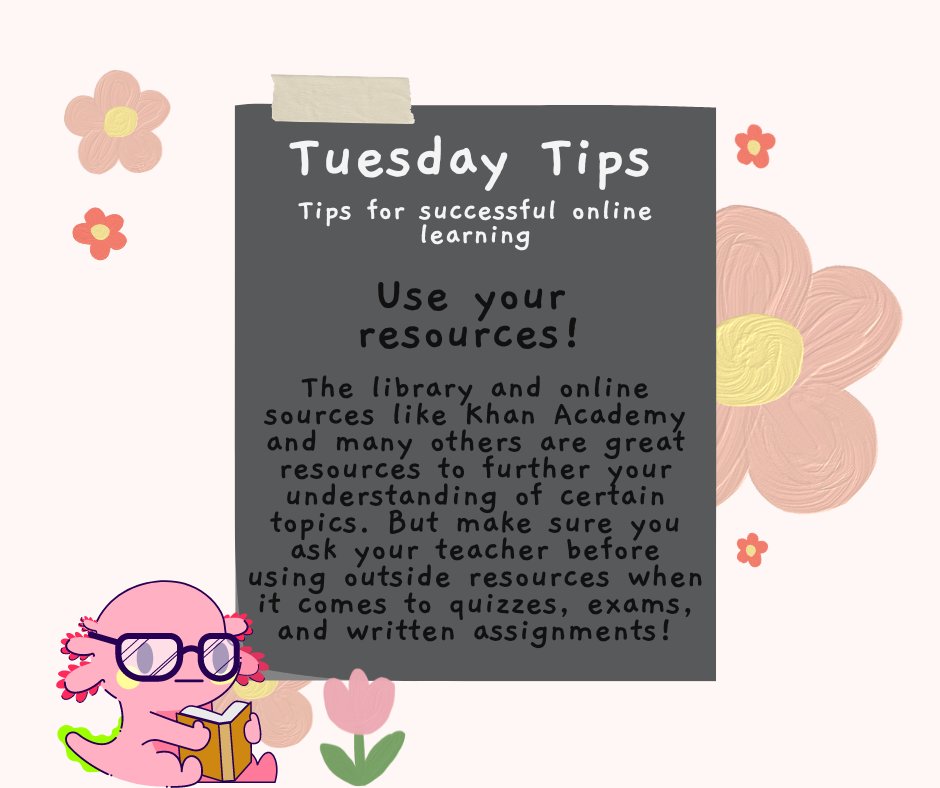 Tuesday Tips
Tips for successful online
learning
Use your
resources!
The library and online
sources like Khan Academy
and many others are great
resources to further your
understanding of certain
topics. But make sure you
ask your teacher before
using outside resources when
it comes to quizzes, exams,
and written assignments!